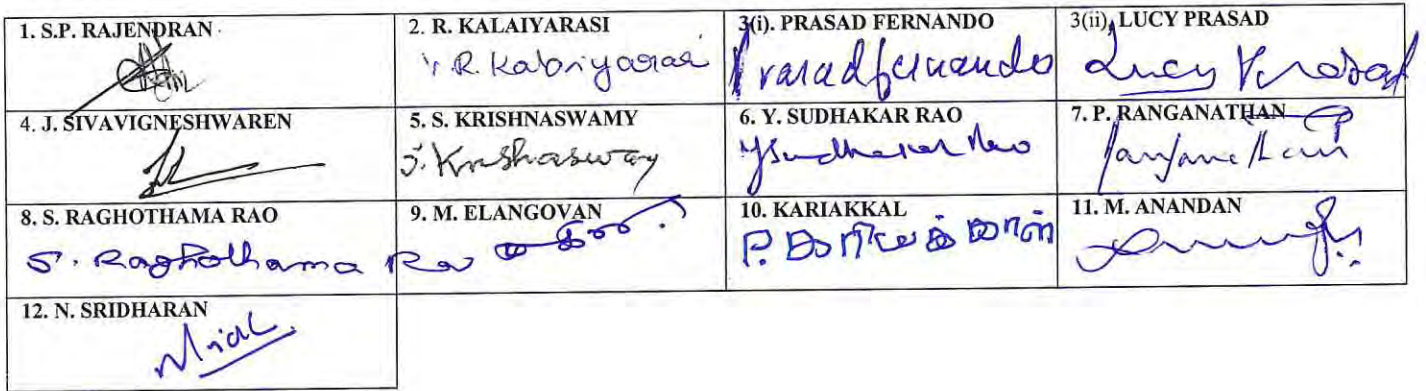 1. S.P. RAJENDRAN
2. R. KALAIYARASI
R. Kalaiyarasi
3(i). PRASAD FERNANDO
Prasad fernando
3(ii). LUCY PRASAD
Lucy Prasad
4. J. SIVAVIGNESHWAREN
5. S. KRISHNASWAMY
S. Krishnaswamy
6. Y. SUDHAKAR RAO
Y Sudhakar Rao
7. P. RANGANATHAN
8. S. RAGHOTHAMA RAO
S. Raghothama Rao
9. M. ELANGOVAN
10. KARIAKKAL
P.
11. M. ANANDAN
12. N. SRIDHARAN